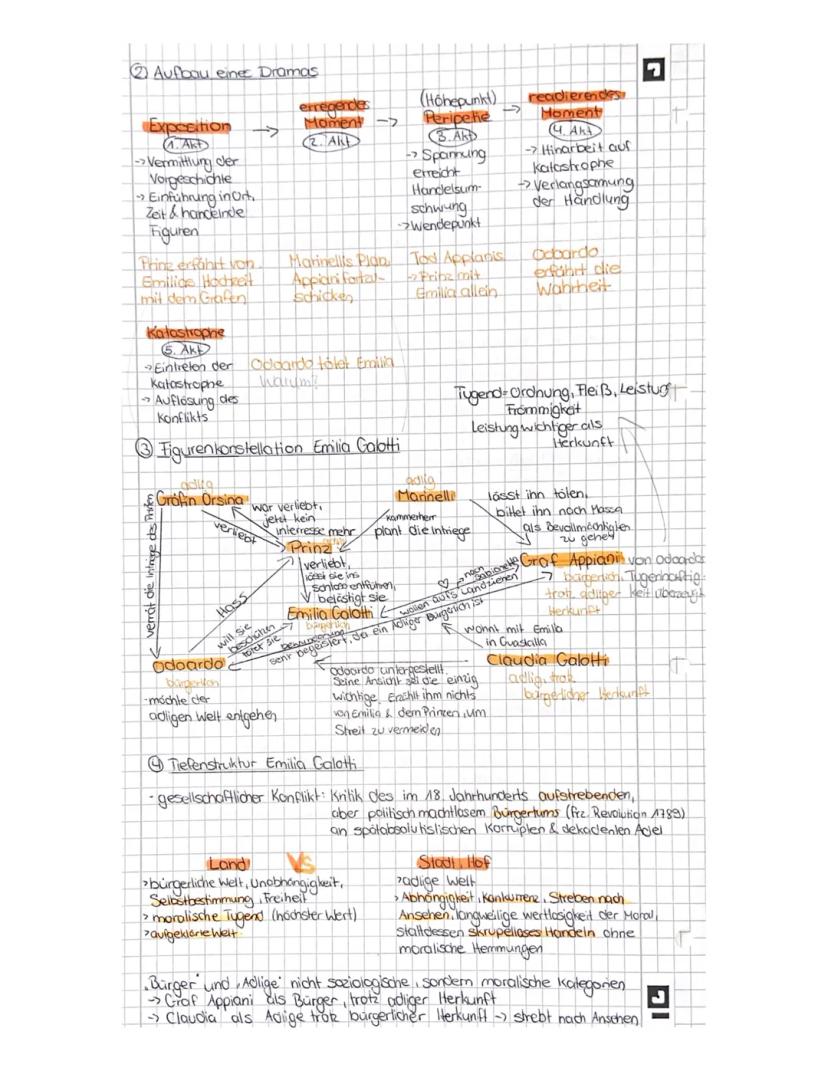 ② Aufbau eines Dramas
Exposition
1. Akt
-> Vermittlung der
Vorgeschichte
-> Einführung in Ort,
Zeit & handelnde
Figuren
->
erregendes
Moment
2. Akt
->
(Höhepunkt)
Peripetie
3. Akt
-> Spannung
erreicht
Handelsum-
schwung
-> Wendepunkt
->
readierendes
Moment
4. Akt
-> Hinarbeit auf
Katastrophe
-> Verlangsamung
der Handlung
Prinz erfährt von
Emilias Hochzeit
mit dem Grafen
Marinellis Plan
Appiani
schicken
Tod Appianis
-> Prinz mit
Emilia allein
Odoardo
erfährt die
Wahrheit
Katastrophe
5. Akt
-> Eintreten der
Katastrophe
-> Auflösung des
Konflikts
Odoardo tötet Emilia
Warum?
Tugend=Ordnung, Fleiß, Leistung
Frömmigkeit
Leistung wichtiger als
Herkunft
③ Figurenkonstellation Emilia Galotti
adlig
Gräfin Orsina
verrät die Intrige des Prinzen
war verliebt,
jetzt kein
interresse mehr
verliebt
adlig
Marinelli
Kammerherr
plant die Intriege
lässt ihn töten,
bittet ihn nach Massa
als Bevollmächtigten
zu gehen
Prinz
verliebt,
lässt sie ins
Schloss entführen,
belästigt sie
Hass
Graf Appiani
bürgerlich
trotz adliger
Herkunft
von Odoardos
Tugenhaftig-
keit überzeugt
nach Sabionetta
wollen aufs Land ziehen
Emilia Galotti
bürgerlich
will sie
beschützen
tötet sie
Bewunderung
sehr begeistert, da ein Adliger Bürgerlich ist
wohnt mit Emilia
in Guastalla
Odoardo
bürgerlich
-möchte der
adligen Welt entgehen
Claudia Galotti
adlig, trotz
bürgerlicher Herkunft
Odoardo untergestellt.
Seine Ansicht sei die einzig
wichtige. Erzählt ihm nichts
von Emilia & dem Prinzen, um
Streit zu vermeiden
④ Tiefenstruktur Emilia Galotti
- gesellschaftlicher Konflikt: Kritik des im 18. Jahrhunderts aufstrebenden,
aber politisch machtlosem Bürgertums (frz. Revolution 1789)
an spätabsolutistischen korrupten & dekadenten Adel
Land
VS
Stadt, Hof
> bürgerliche Welt, Unabhängigkeit,
Selbstbestimmung, Freiheit
> moralische Tugend (höchster Wert)
> aufgeklärte Welt
> adlige Welt
> Abhängigkeit, Konkurrenz, Streben nach
Ansehen, langweilige wertlosigkeit der Moral,
stattdessen skrupelloses Handeln ohne
moralische Hemmungen
„Bürger" und „Adlige" nicht soziologische, sondern moralische Kategorien
-> Graf Appiani als Bürger, trotz adliger Herkunft
-> Claudia als Adlige trotz bürgerlicher Herkunft -> strebt nach Ansehen